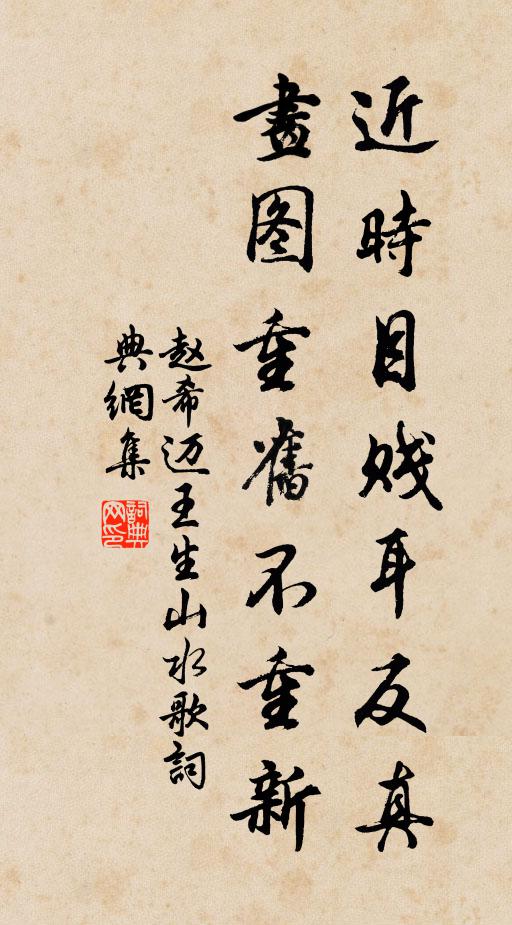 近時目賤耳反真
畫图重舊不重新
赵希迈王生山水歌詞
典網集
詞典网印